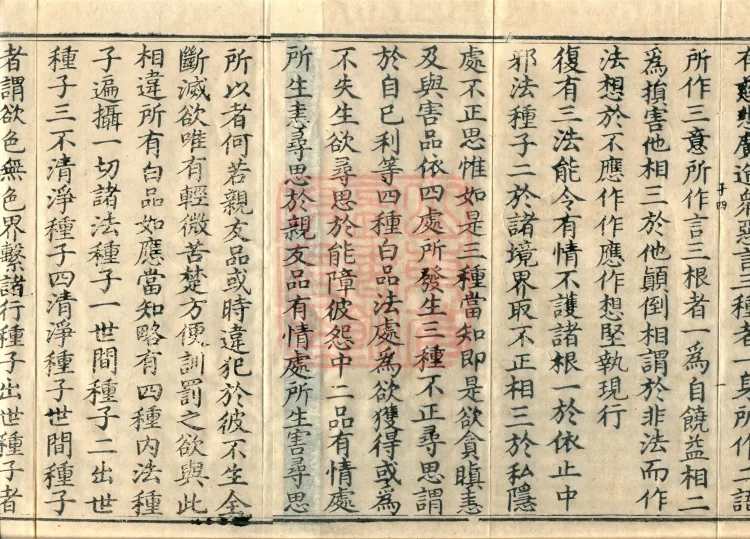 所作三意所作言三根者一為自饒益相二
為損害他相三於他顛倒相謂於非法而作
法想於不應作作應作想堅執現行
復有三法能令有情不護諸根一於依止中
邪法種子二於諸境界取不正相三於私隱
處不正思惟如是三種當知即是欲貪瞋恚
及與害品依四處所發生三種不正尋思謂
於自已利等四種白品法處為欲獲得或為
不失生欲尋思於能障彼怨中二品有情處
所生恚尋思於親友品有情處所生害尋思
所以者何若親友品或時違犯於彼不生全
斷滅欲唯有輕微苦楚方便訓罰之欲與此
相違所有白品如應當知略有四種內法種
子遍攝一切諸法種子一世間種子二出世
種子三不清淨種子四清淨種子世間種子
者謂欲色無色界繫諸行種子出世種子者